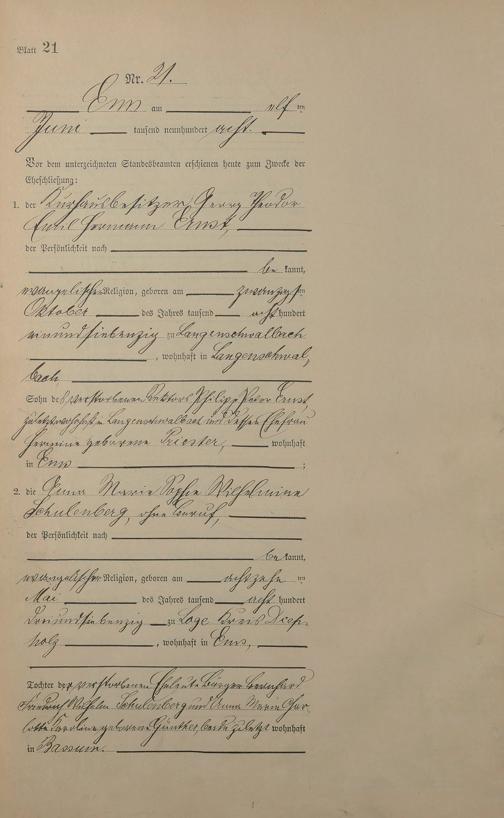 Blatt 21
Nr. 21.
Ems am elf ten
Juni tausend neunhundert acht.
Vor dem unterzeichneten Standesbeamten erschienen heute zum Zwecke der
Eheschließung:
1. der Kurhausbesitzer Georg Theodor
Emil Hermann Ernst,
der Persönlichkeit nach
be kannt,
evangelischer Religion, geboren am zwanzigsten
Oktober des Jahres tausend acht hundert
einundsiebenzig zu Langenschwalbach
, wohnhaft in Langenschwal¸
bach
Sohn des verstorbenen Rektors Philipp Ernst
zuletzt wohnhaft in Langenschwalbach und dessen Ehefrau
Hermine geborene Priester, wohnhaft
in Ems ;
2. die Anna Marie Sophie Wilhelmine
Schulenberg, ohne Beruf,
der Persönlichkeit nach
be kannt,
evangelischer Religion, geboren am achtzehn ten
Mai des Jahres tausend acht hundert
dreiundsiebenzig zu Loge Kreis Diep¸
holz , wohnhaft in Ems,
Tochter der verstorbenen Eheleute Bürger Bernhard
Friedrich Wilhelm Schulenberg und Anna Marie Char¸
lotte Karoline geborene Günther, beide zuletzt wohnhaft
in Bassum.